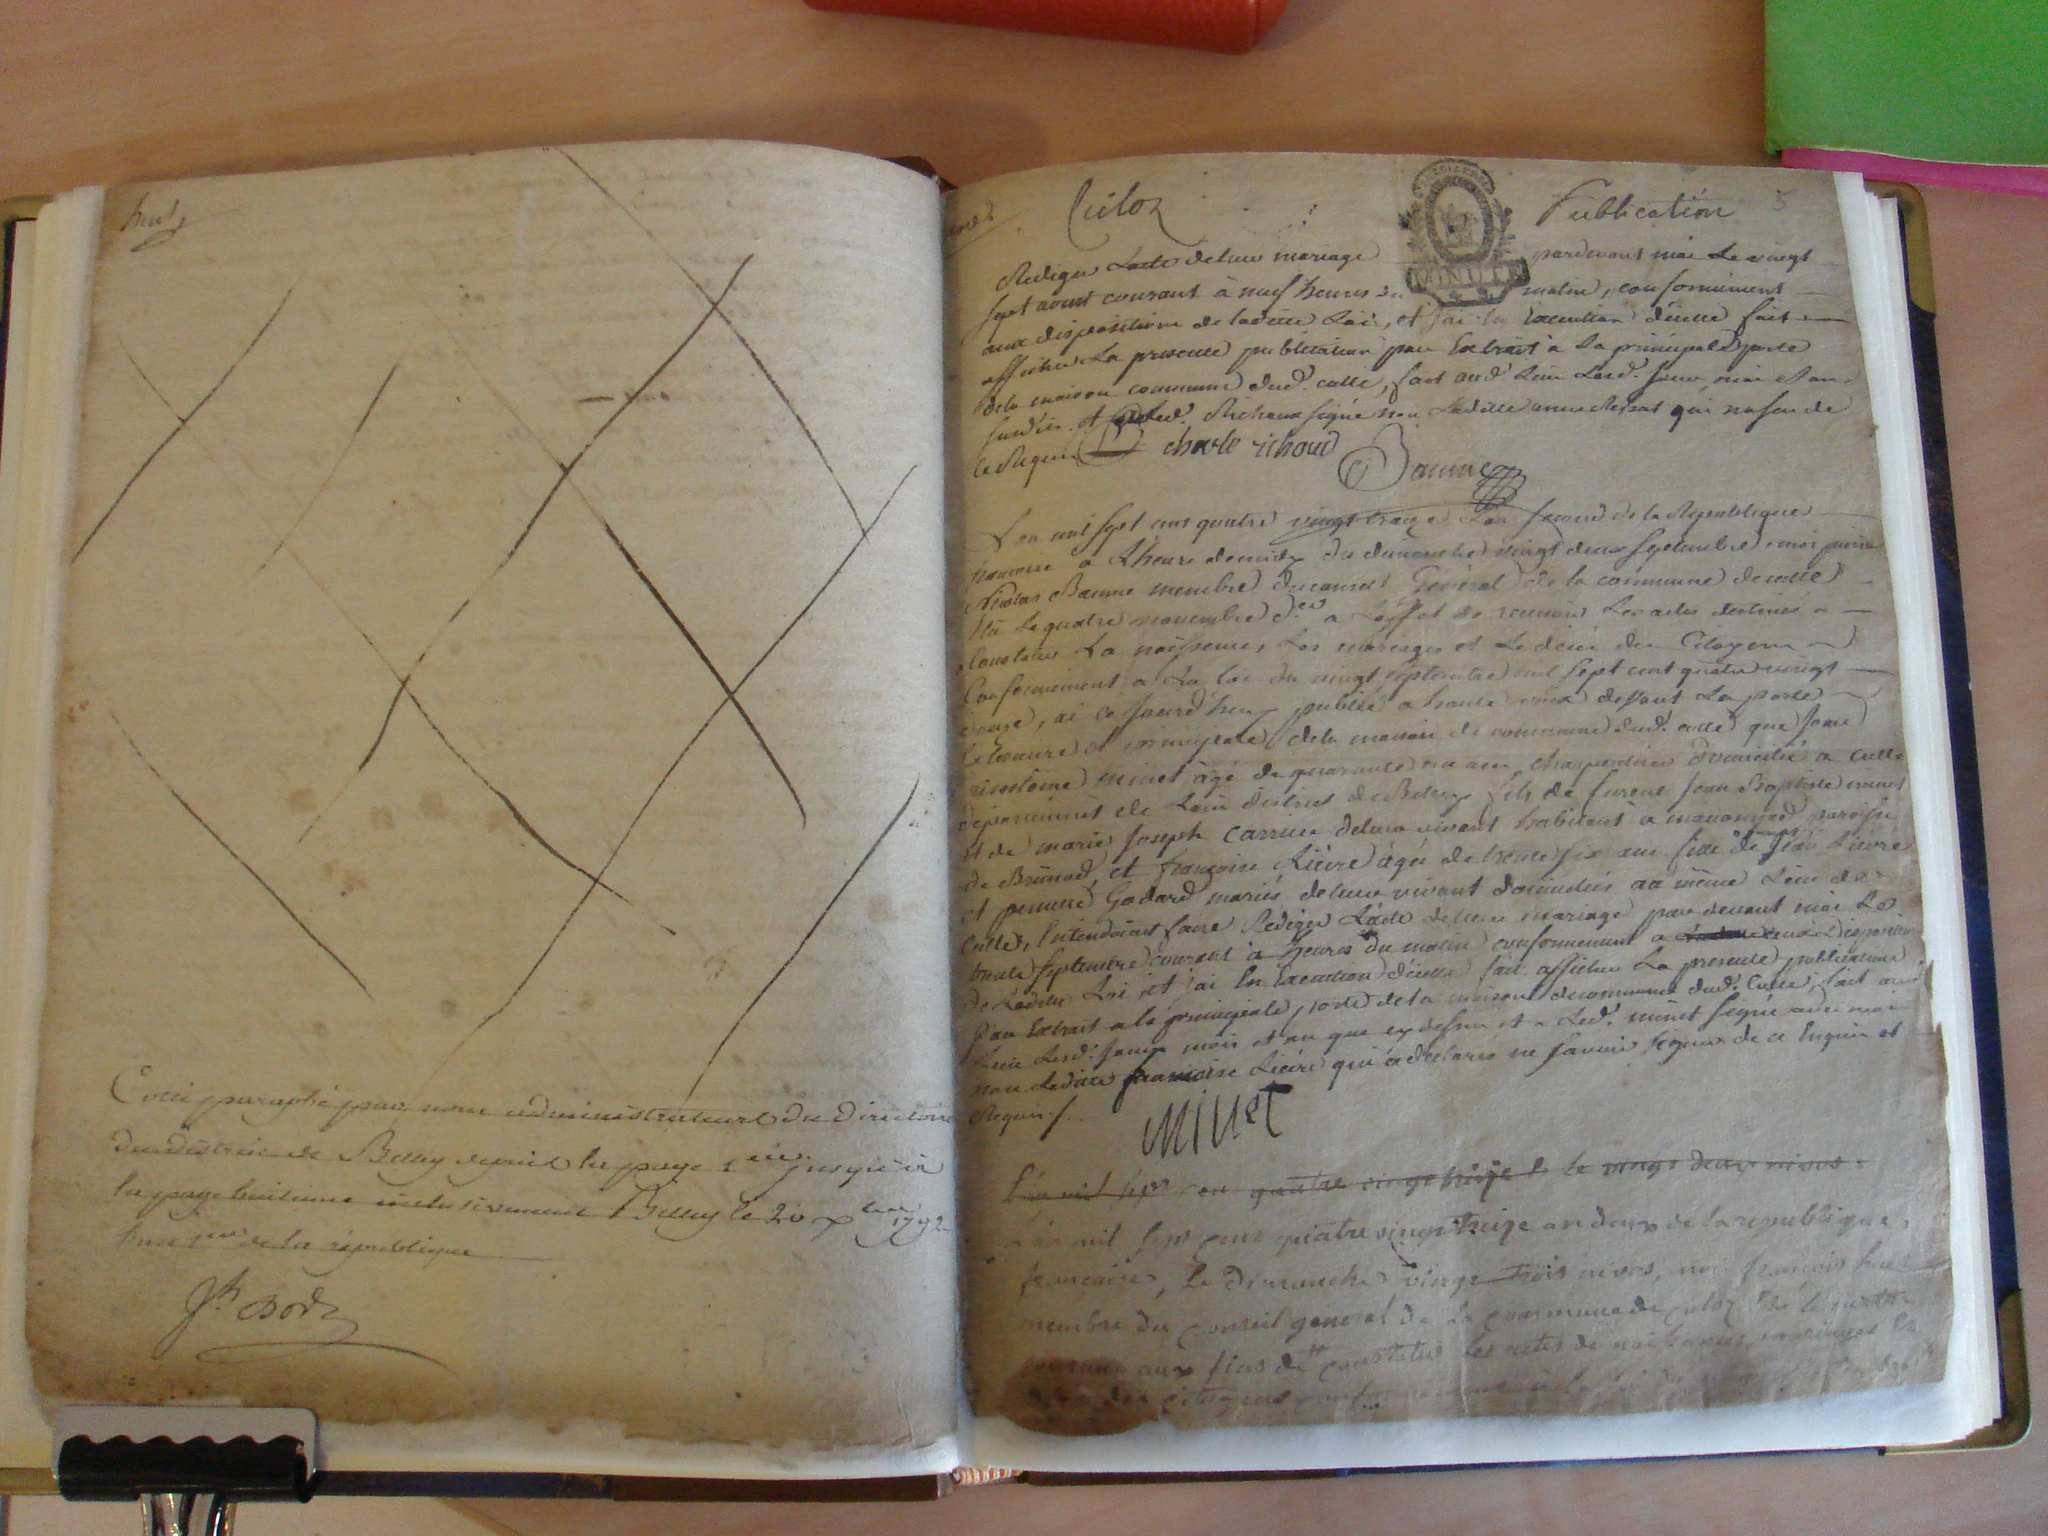 huit
Cotté paraphé par nous administrateurs du directoire
du district de Belley depuis la page 1ere jusqu'à
la page huitieme inclusivement à Belley le 20 xbre 1792
l'an 1er de la république
Jh Bod
Culoz
Publication
MINUTE
Rediger L'acte de leur mariage pardevant moi Le vingt
sept aoust courant à neuf heures du matin, conformément
aux dispositions de ladite Loi, et j'ai en Execution d'icelle fait
afficher La presente publication par Extrait à La principale porte
de la maison commune dud. culle, fait aud. Lieu Lesd. jour, mois et an
susdits et Led. Richoux signé non Ladite anne qui na seu de
ce Requise
charle richoud
Baume
L'an mil sept cens quatre vingt traize L'an second de la Republique
francaise a L'heure de midy du dimanche vingt deux septembre moi pierre
Nicolas Baume membre du conseil Général de la commune de culle
élu Le quatre novembre d.er a L'effet de recevoir Les actes destinés a
Constater La naissence, Les mariages et Le décès des Citoyens
Conformément a La loi du vingt septembre mil sept cent quatre vingt
douze, ai ce jourd'huy publié a haute voix devant La porte
Exterieure et principale de la maison de commune dud. culle que Jean
crisostome minet âgé de quarante ans, charpentier domicilié a culle
département de L'ain district de Belley fils de furent Jean Baptiste minet
et de marie Joseph Carrier de leur vivant habitant a paroisse
de et françoise Livre âgée de trente six ans fille de Livre
et pernette Godard mariés de leur vivant domiciliés au même Lieu de
Culle, Entendoient faire Rediger L'acte de leur mariage par devant moi Le
trente septembre courant à heures du matin conformement a dispositions
de Ladite Loi et j'ai En Execution d'icelle fait afficher La presente publication
par Extrait a la principale porte de la maison de commune dud. Culle, fait aud.
Lieu Lesd. Jour mois et an que cy dessus et a Led. minet signé avec moi
non Ladite francoise Livre qui a declaré ne savoir signer de ce Enquis et
Requis
Minet
L'an mil sept cen quatre vingt treize le vingt deux nivos
L'an mil sept cens quatre vingt treize an deux de la republique
francaise, Le Dimanche vingt trois nivos, moi françois
membre du conseil general de La commune de culoz
aux fins de constater Les actes de naissances, mariages et
des citoyens conformément à la loi du